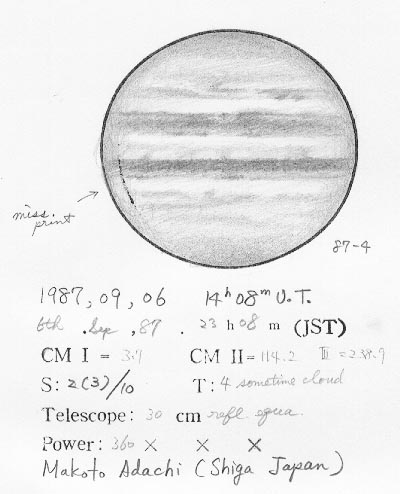 miss.
print
87-4
1987, 09, 06 14h 08m U.T.
6th . Sep , 87 . 23 h 08 m (JST)
CM I = 3.1 CM II= 114.2 III = 238.9
S: 2(3)/10 T: 4 sometime cloud
Telescope: 30 cm refl. equa.
Power: 360 × × ×
Makoto Adachi (Shiga Japan)